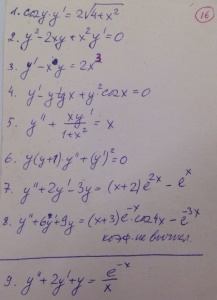 16
1. cos y · y' = 2√(4+x²)
2. y² - 2xy + x²y' = 0
3. y' - x y = 2x³
4. y' - y tg x + y² cos x = 0
5. y'' + xy'/(1+x²) = x
6. y(y+1)y'' + (y')² = 0
7. y'' + 2y' - 3y = (x+2)e^(2x) - e^x
8. y'' + 6y' + 9y = (x+3)e^(-x) · cos 4x - e^(-3x)
коэф. не вычисл.
9. y'' + 2y' + y = e^(-x)/x